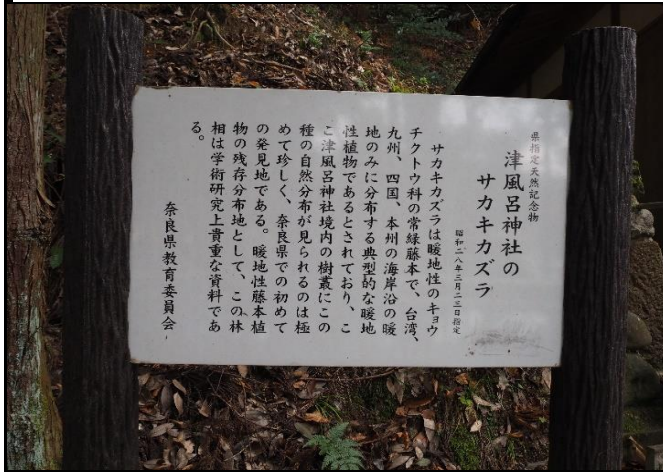 県指定天然記念物
津風呂神社の
サカキカズラ
昭和二八年三月二三日指定
サカキカズラは暖地性のキョウ
チクトウ科の常緑藤本で、台湾、
九州、四国、本州の海岸沿の暖
地のみに分布する典型的な暖地
性植物であるとされており、こ
こ津風呂神社境内の樹叢にこの
種の自然分布が見られるのは極
めて珍しく、奈良県での初めて
の発見地である。暖地性藤本植
物の残存分布地として、この林
相は学術研究上貴重な資料であ
る。
奈良県教育委員会